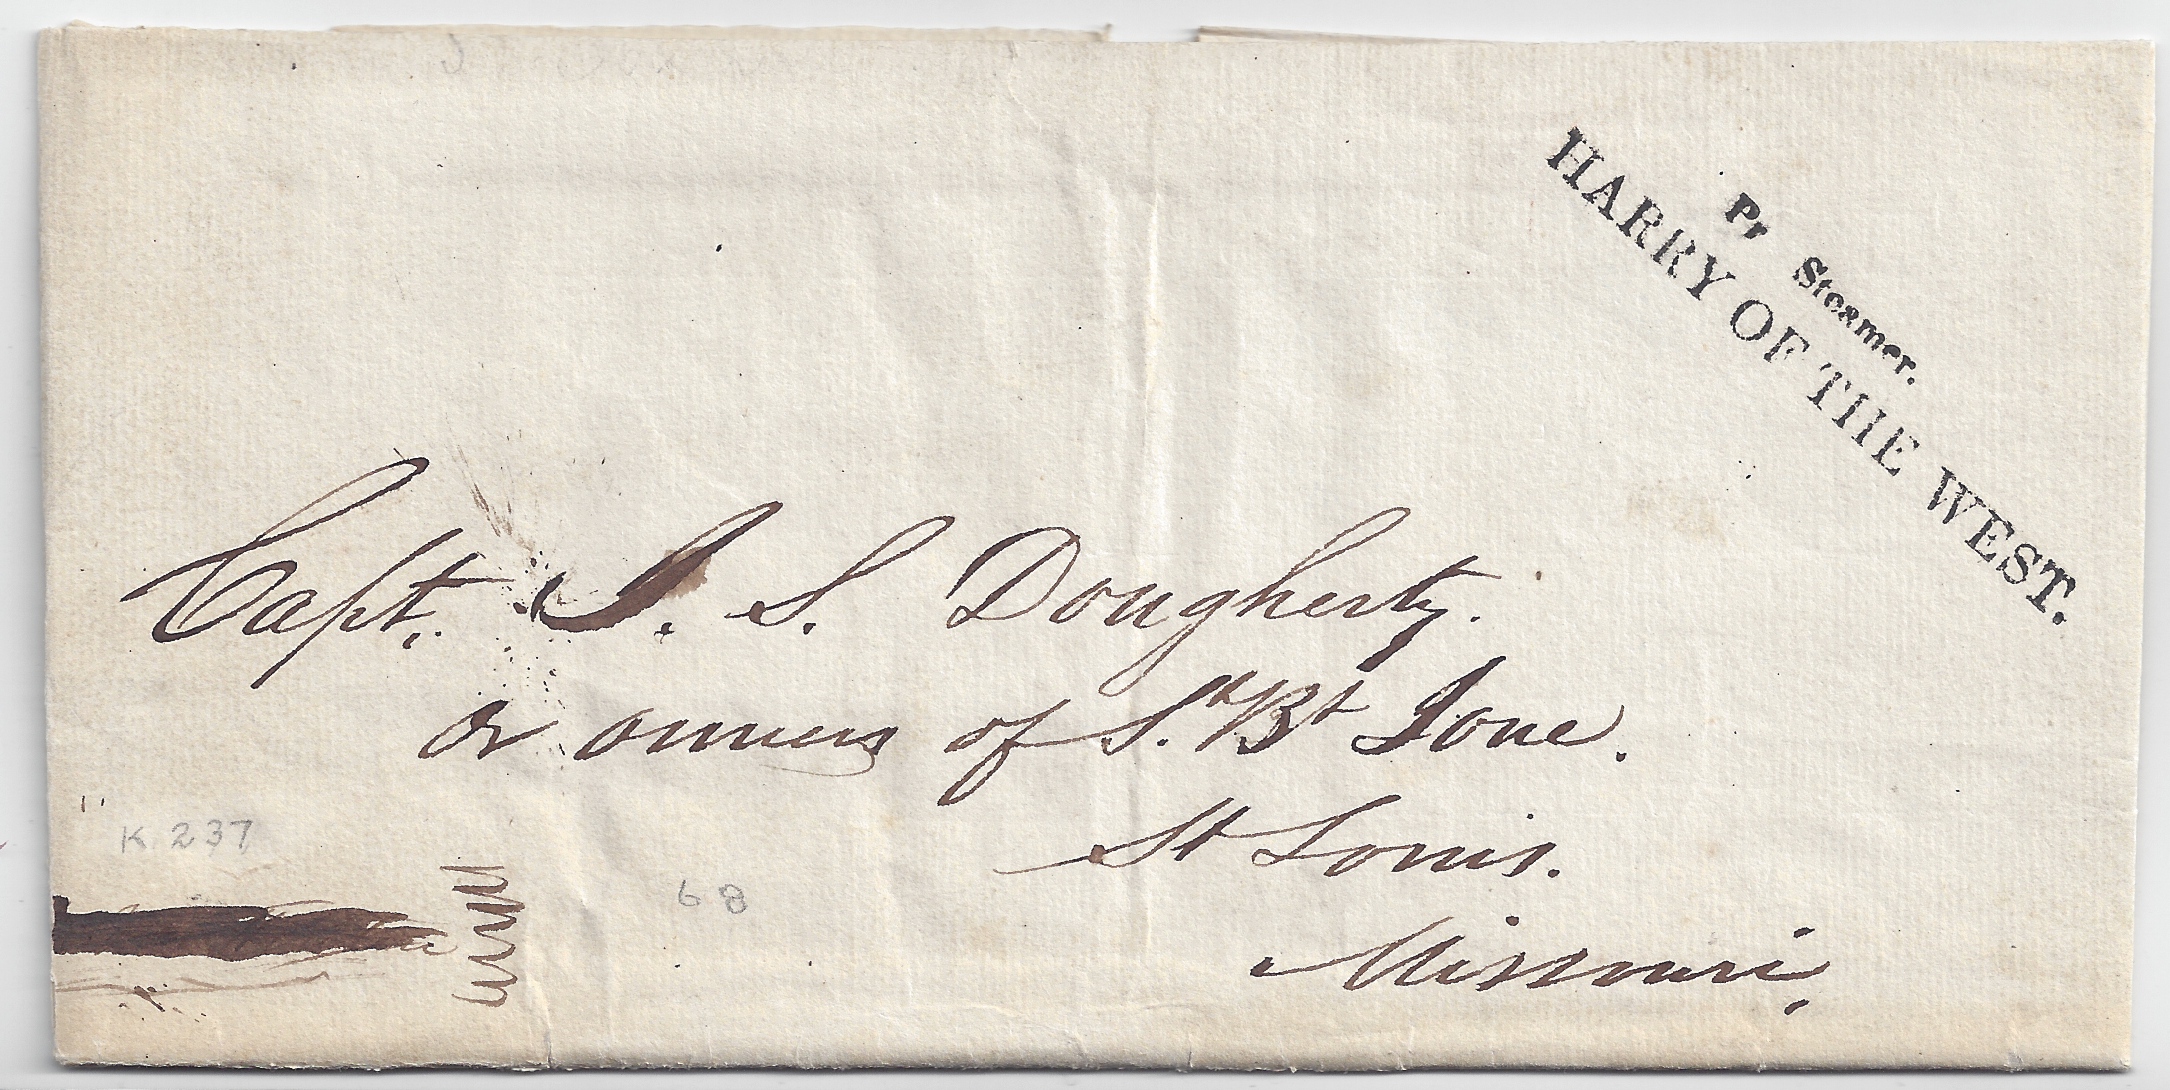 Pr Steamer.
HARRY OF THE WEST.
Capt. J. S. Dougherty.
or owners of St. Bt Ione.
St Louis.
Missouri,
K 237
68